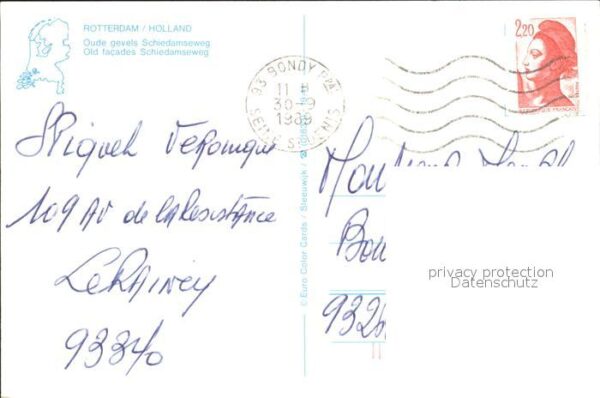 ROTTERDAM / HOLLAND
Oude gevels Schiedamseweg
Old façades Schiedamseweg
93 BONDY PPAL
11 H
30 - 9
1989
SEINE ST DENIS
2,20
REPUBLIQUE FRANÇAISE
Miguel Veronique
109 AV de la Resistance
Le RAINCY
93340
© Euro Color Cards / Sleeuwijk /
Bon
932
privacy protection
Datenschutz